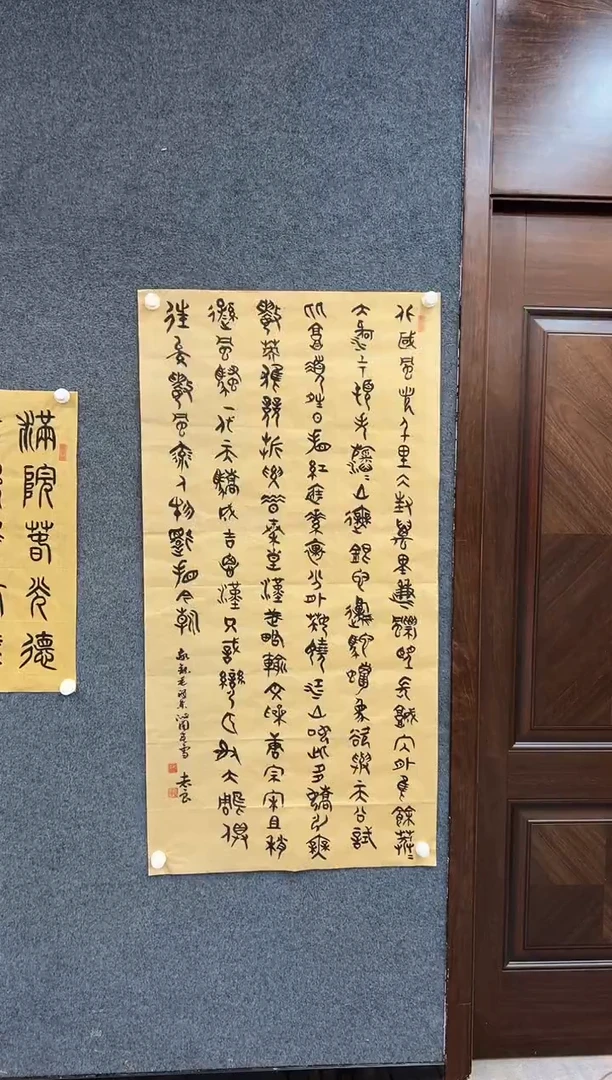 北國風光千里冰封萬里雪飄望長城內外惟餘莽莽
大河上下頓失滔滔山舞銀蛇原馳蠟象欲與天公試
比高須晴日看紅裝素裹分外妖嬈江山如此多嬌引無
數英雄競折腰惜秦皇漢武略輸文采唐宗宋祖稍
遜風騷一代天驕成吉思漢只識彎弓射大雕俱
往矣數風流人物還看今朝
毛澤東沁園春雪
滿院春光德